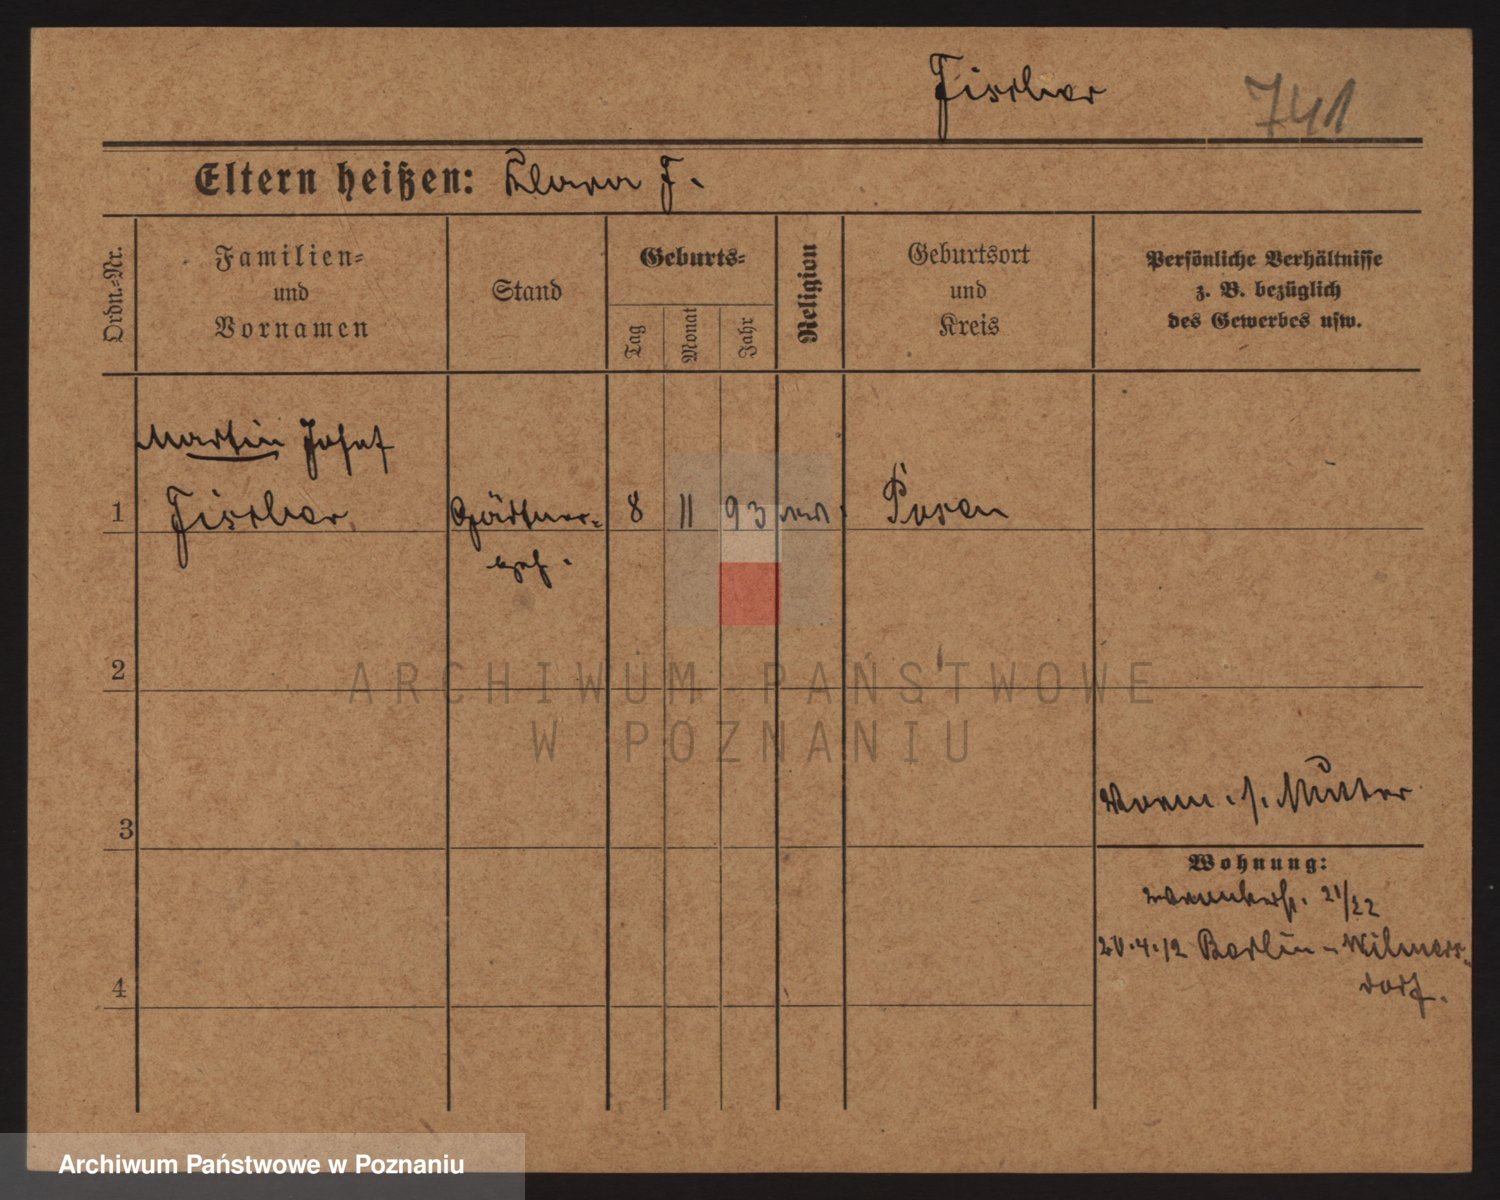 Fischer 741
Eltern heißen: Klara F.
Ordn.-Nr.
Familien-
und
Vornamen
Stand
Geburts-
Tag
Monat
Jahr
Religion
Geburtsort
und
Kreis
Persönliche Verhältnisse
z. B. bezüglich
des Gewerbes usw.
Martin Josef
1 Fischer Gärtner- 8 11 93 Posen
geh.
2
ARCHIWUM PAŃSTWOWE
W POZNANIU
Vorm. s. Mutter
3
Wohnung:
21/22
20.4.12 Berlin-Wilmers-
dorf.
4
Archiwum Państwowe w Poznaniu